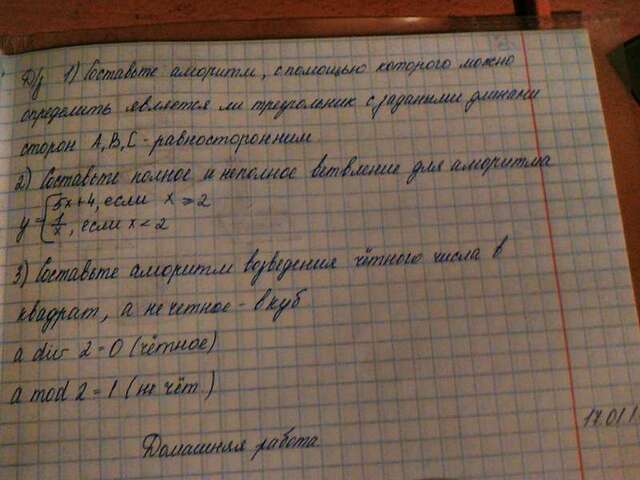 Д/з 1) Составьте алгоритм, с помощью которого можно
определить является ли треугольник с заданными длинами
сторон A, B, C - равносторонним
2) Составьте полное и неполное ветвление для алгоритма
y = { 5x+4, если x ≥ 2
1/x, если x < 2
3) Составьте алгоритм возведения чётного числа в
квадрат, а не четное - в куб
a div 2 = 0 (чётное)
a mod 2 = 1 (не чёт.)
17.01.1
Домашняя работа